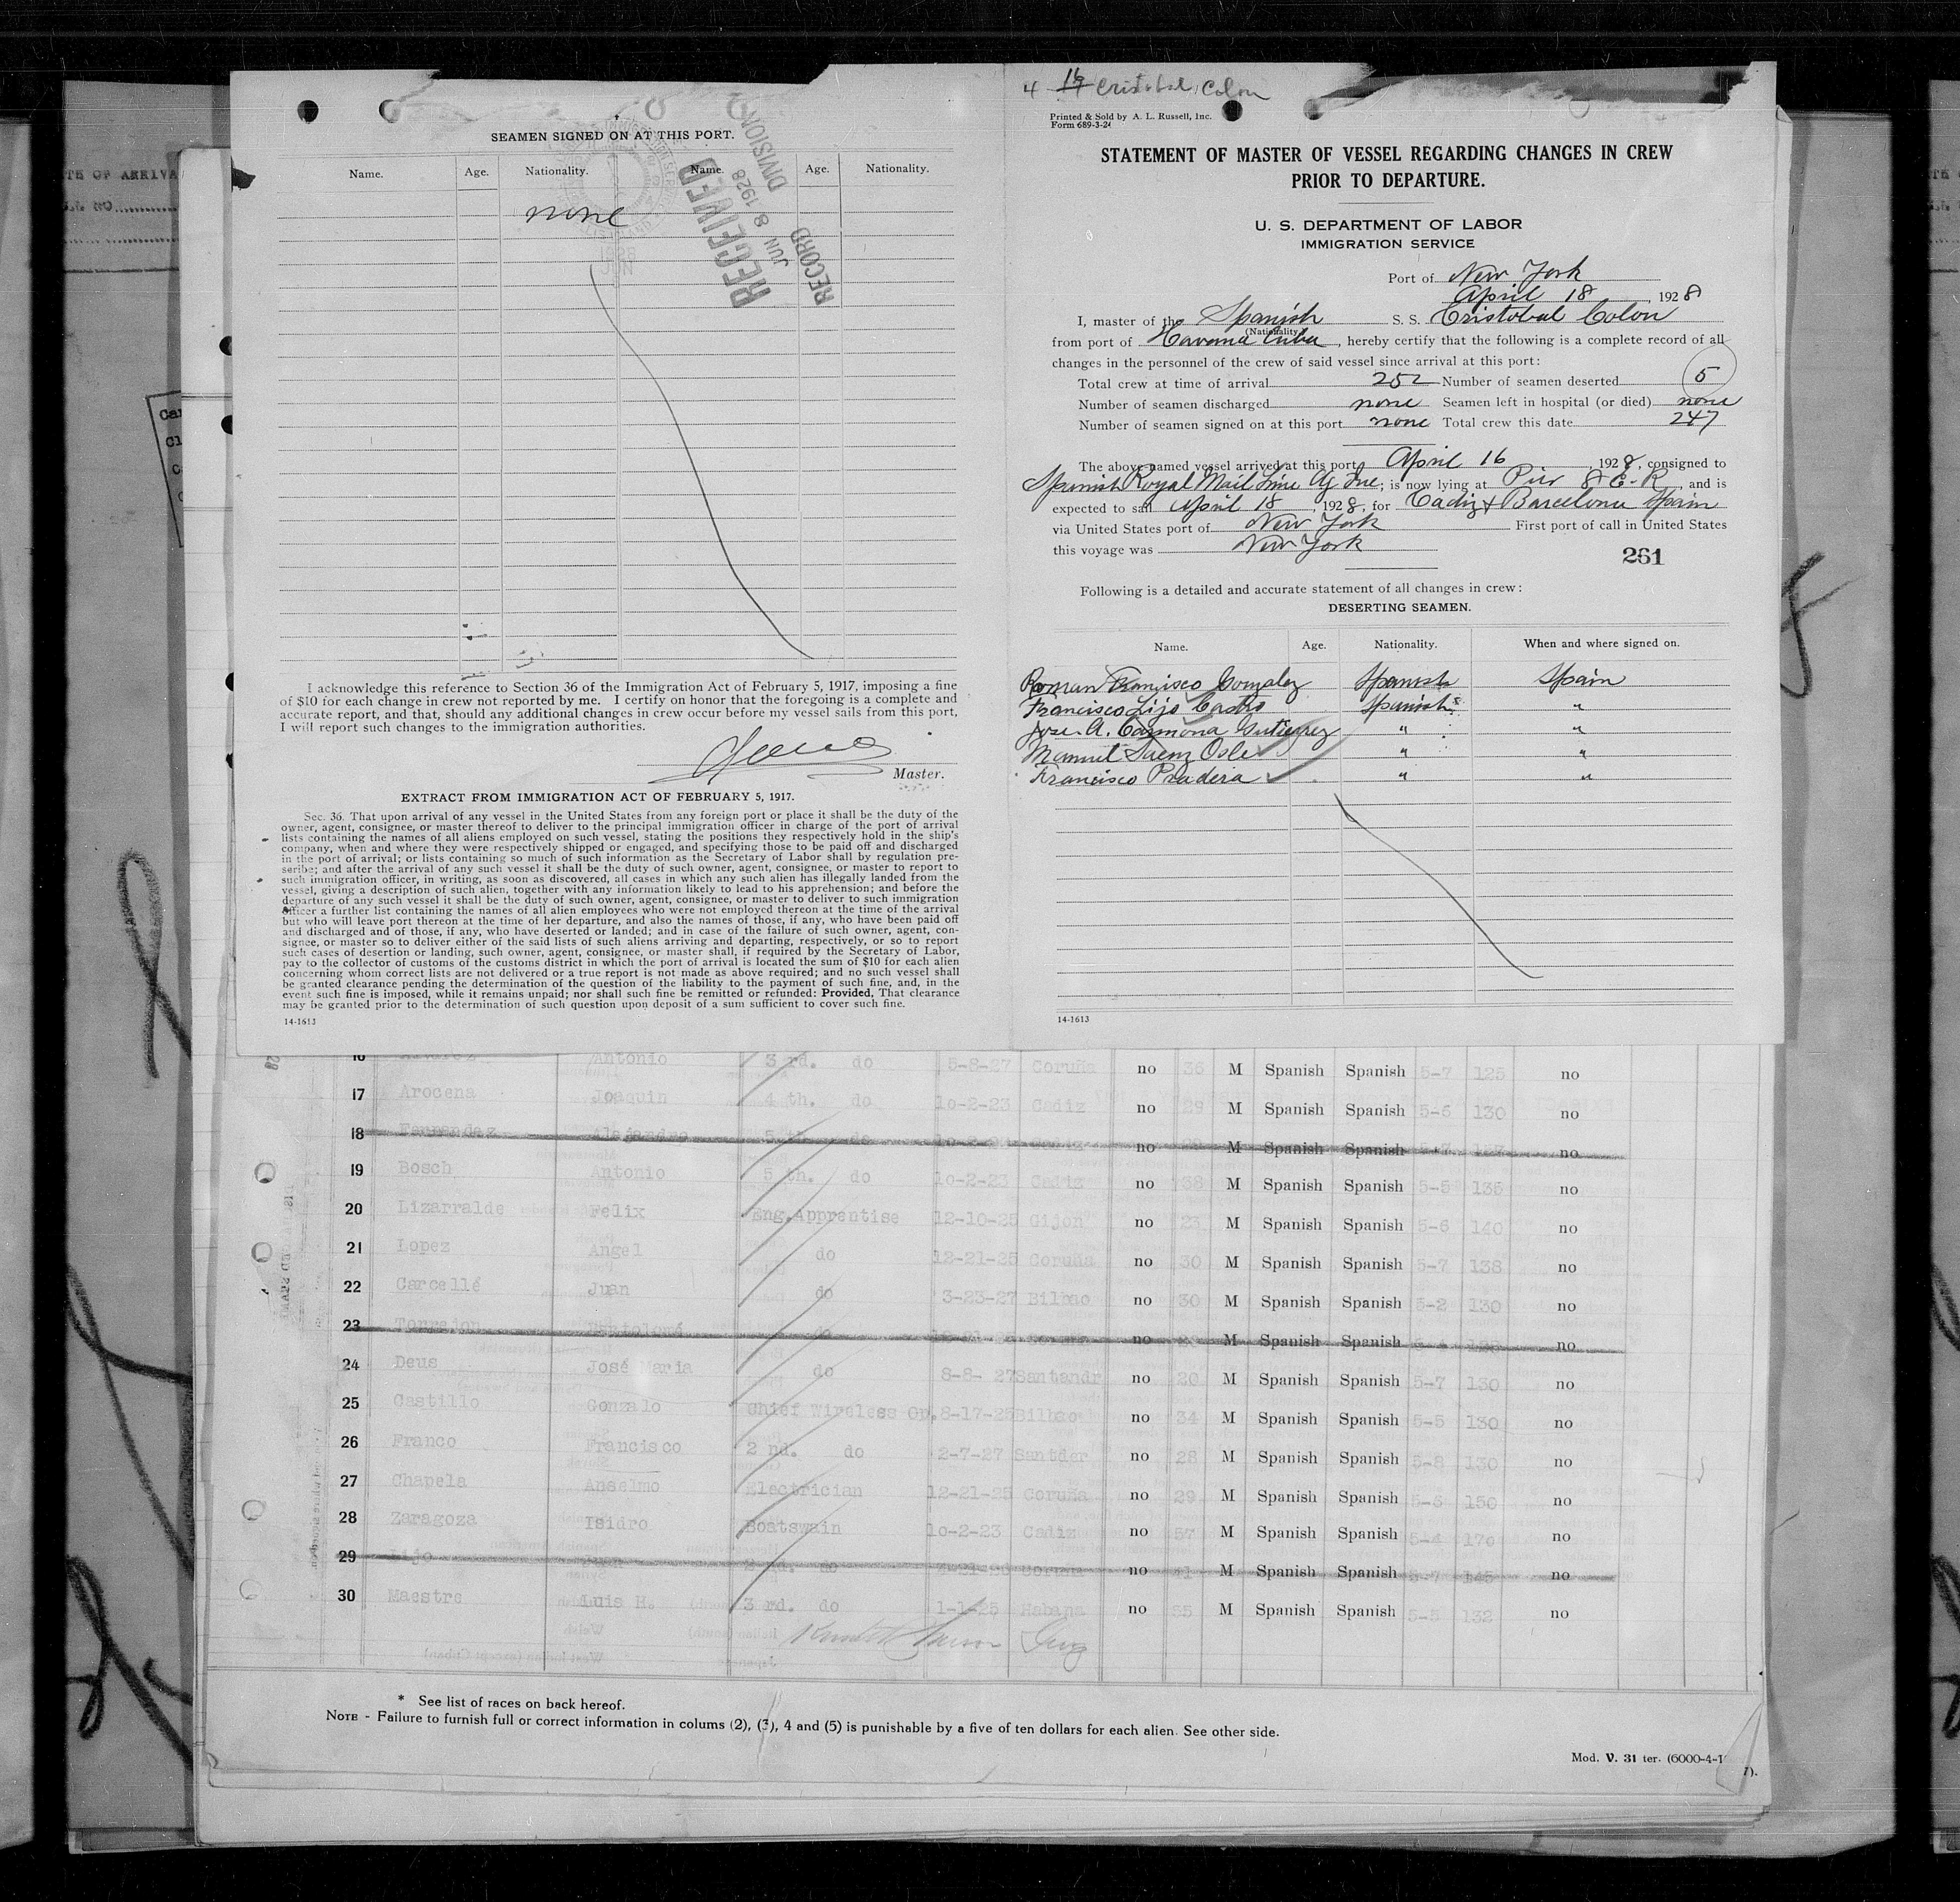 SEAMEN SIGNED ON AT THIS PORT.
Name. Age. Nationality. Name. Age. Nationality.
none
RECEIVED
JUN 8 1928
RECORD DIVISION
I acknowledge this reference to Section 36 of the Immigration Act of February 5, 1917, imposing a fine
of $10 for each change in crew not reported by me. I certify on honor that the foregoing is a complete and
accurate report, and that, should any additional changes in crew occur before my vessel sails from this port,
I will report such changes to the immigration authorities.
Master.
EXTRACT FROM IMMIGRATION ACT OF FEBRUARY 5, 1917.
Sec. 36. That upon arrival of any vessel in the United States from any foreign port or place it shall be the duty of the
owner, agent, consignee, or master thereof to deliver to the principal immigration officer in charge of the port of arrival
lists containing the names of all aliens employed on such vessel, stating the positions they respectively hold in the ship's
company, when and where they were respectively shipped or engaged, and specifying those to be paid off and discharged
in the port of arrival; or lists containing so much of such information as the Secretary of Labor shall by regulation pre-
scribe; and after the arrival of any such vessel it shall be the duty of such owner, agent, consignee, or master to report to
such immigration officer, in writing, as soon as discovered, all cases in which any such alien has illegally landed from the
vessel, giving a description of such alien, together with any information likely to lead to his apprehension; and before the
departure of any such vessel it shall be the duty of such owner, agent, consignee, or master to deliver to such immigration
officer a further list containing the names of all alien employees who were not employed thereon at the time of the arrival
but who will leave port thereon at the time of her departure, and also the names of those, if any, who have been paid off
and discharged and of those, if any, who have deserted or landed; and in case of the failure of such owner, agent, con-
signee, or master so to deliver either of the said lists of such aliens arriving and departing, respectively, or so to report
such cases of desertion or landing, such owner, agent, consignee, or master shall, if required by the Secretary of Labor,
pay to the collector of customs of the customs district in which the port of arrival is located the sum of $10 for each alien
concerning whom correct lists are not delivered or a true report is not made as above required; and no such vessel shall
be granted clearance pending the determination of the question of the liability to the payment of such fine, and, in the
event such fine is imposed, while it remains unpaid; nor shall such fine be remitted or refunded: Provided, That clearance
may be granted prior to the determination of such question upon deposit of a sum sufficient to cover such fine.
14-1613
4 16 Cristobal Colon
Printed & Sold by A. L. Russell, Inc.
Form 689-3-24
STATEMENT OF MASTER OF VESSEL REGARDING CHANGES IN CREW
PRIOR TO DEPARTURE.
U. S. DEPARTMENT OF LABOR
IMMIGRATION SERVICE
Port of New York
April 18, 1928
I, master of the Spanish S. S. Cristobal Colon
(Nationality)
from port of Havana Cuba, hereby certify that the following is a complete record of all
changes in the personnel of the crew of said vessel since arrival at this port:
Total crew at time of arrival 252 Number of seamen deserted 5
Number of seamen discharged none Seamen left in hospital (or died) none
Number of seamen signed on at this port none Total crew this date 247
The above named vessel arrived at this port April 16, 1928, consigned to
Spanish Royal Mail Line Ag Inc; is now lying at Pier 8 E-R, and is
expected to sail April 18, 1928, for Cadiz & Barcelona Spain
via United States port of New York First port of call in United States
this voyage was New York
261
Following is a detailed and accurate statement of all changes in crew:
DESERTING SEAMEN.
Name. Age. Nationality. When and where signed on.
Roman Francisco Gonzalez Spanish Spain
Francisco Lijo Castro Spanish "
Jose A. Carmona Gutierrez " "
Manuel Saenz Osle " "
Francisco Pradera " "
14-1613
16 Alvarez Antonio 3 rd. do 5-8-27 Coruña no 36 M Spanish Spanish 5-7 125 no
17 Arocena Joaquin 4 th. do 10-2-23 Cadiz no 29 M Spanish Spanish 5-6 130 no
18 Fernandez Alejandro 5 th. do no M Spanish Spanish no
19 Bosch Antonio 5 th. do 10-2-23 Cadiz no 38 M Spanish Spanish 5-5 135 no
20 Lizarralde Felix Eng.Apprentise 12-10-25 Gijon no 23 M Spanish Spanish 5-6 140 no
21 Lopez Angel do 12-21-25 Coruña no 30 M Spanish Spanish 5-7 138 no
22 Carcellé Juan do 3-23-27 Bilbao no 30 M Spanish Spanish 5-2 130 no
23 do no M Spanish Spanish no
24 Deus José Maria do 8-8- 27 Santandr no 20 M Spanish Spanish 5-7 130 no
25 Castillo Gonzalo Chief Wireless Op. 8-17-25 Bilbao no 34 M Spanish Spanish 5-5 130 no
26 Franco Francisco 2 nd. do 2-7-27 Santder no 28 M Spanish Spanish 5-8 130 no
27 Chapela Anselmo Electrician 12-21-25 Coruña no 29 M Spanish Spanish 5-6 150 no
28 Zaragoza Isidro Boatswain 10-2-23 Cadiz no 57 M Spanish Spanish 5-4 170 no
29 Lijo Juan 2 nd. do no 41 M Spanish Spanish 5-7 145 no
30 Maestre Luis H. 3 rd. do 1-1-25 Habana no 35 M Spanish Spanish 5-5 132 no
* See list of races on back hereof.
NOTE - Failure to furnish full or correct information in colums (2), (3), 4 and (5) is punishable by a five of ten dollars for each alien. See other side.
Mod. V. 31 ter. (6000-4-1